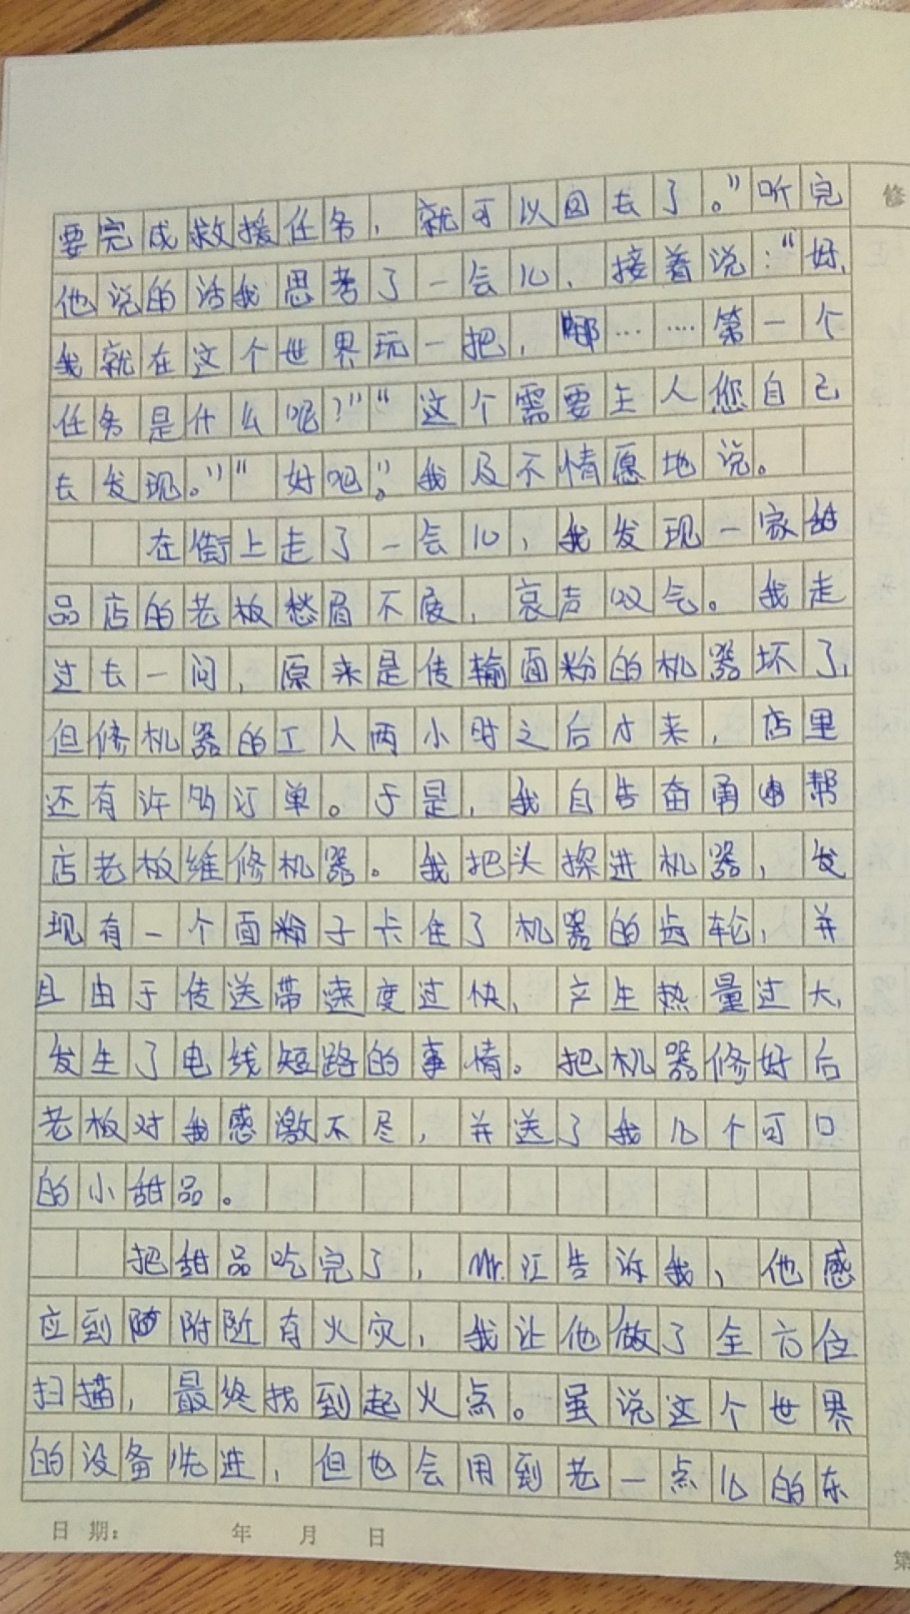 修
要完成救援任务，就可以回去了。”听完
他说的话我思考了一会儿，接着说：“好，
我就在这个世界玩一把，那……第一个
任务是什么呢？”“这个需要主人您自己
去发现。”“好吧。”我及不情愿地说。
在街上走了一会儿，我发现一家甜
品店的老板愁眉不展，哀声叹气。我走
过去一问，原来是传输面粉的机器坏了，
但修机器的工人两小时之后才来，店里
还有许多订单。于是，我自告奋勇帮
店老板维修机器。我把头探进机器，发
现有一个面粉子卡住了机器的齿轮，并
且由于传送带速度过快，产生热量过大，
发生了电线短路的事情。把机器修好后
老板对我感激不尽，并送了我几个可口
的小甜品。
把甜品吃完了，Mr.江告诉我，他感
应到附近有火灾，我让他做了全方位
扫描，最终找到起火点。虽说这个世界
的设备先进，但也会用到老一点儿的东
日期： 年 月 日
第